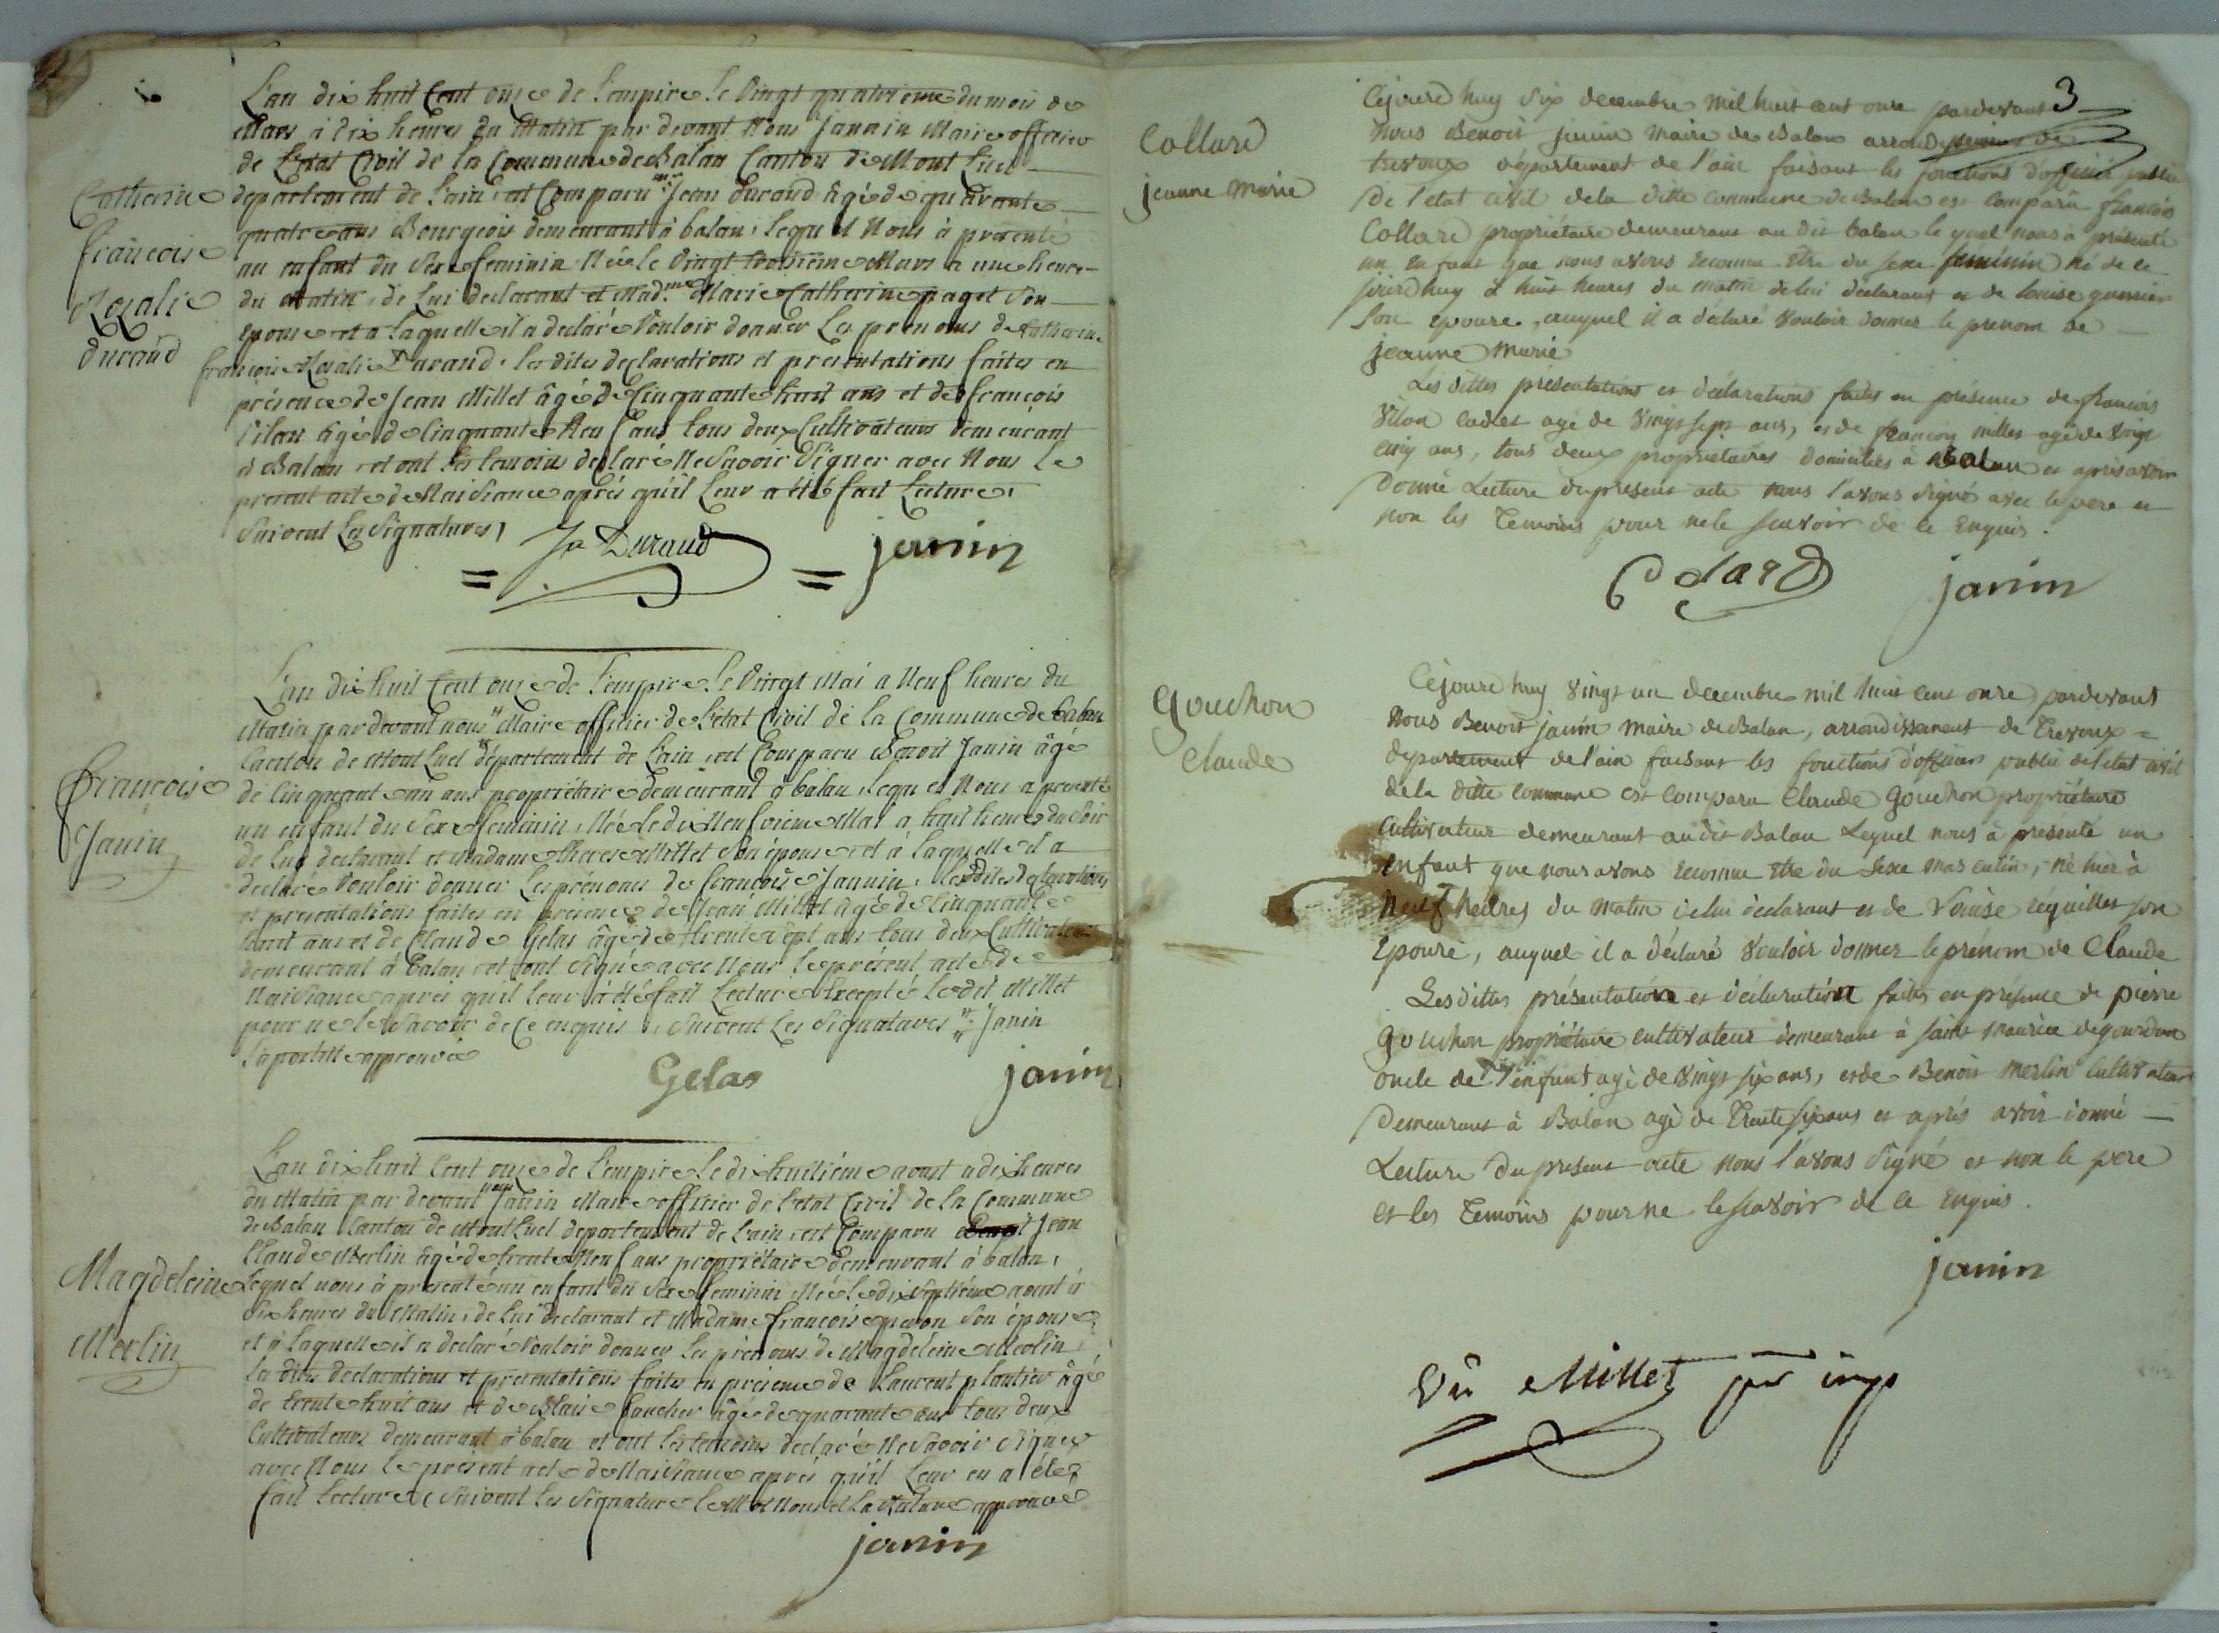 L'an dix huit Cent onze de l'empire le Vingt quatrieme du mois de
Mars à dix heures du Matin par devant Nous Janain Maire officier
de l'état Civil de la Commune de Balan Canton de Mont Luel
departement de l'ain, est Comparu Jean Durand âgé de quarante
quatre ans Bourgeois demeurant à balan, lequel Nous à presenté
un enfant du Sexe feminin Née le Vingt troisieme Mars a une heure
du Matin, de Lui declarant et Mad.me Marie Catherine paget Son
Epouse et a laquelle il a declaré Vouloir donner Les prenoms de Catherine
françoise Rosalie Durand, les dites declarations et presentations faites en
présence de Jean Millet âgé de Cinquante huit ans et de françois
Vilan âgé de Cinquante Neuf ans tous deux Cultivateurs demeurant
à Balan et ont les temoins declaré Ne Savoir Signer avec Nous Le
present acte de Naissance après qu'il Leur a été fait Lecture,
Suivent Les Signatures,
Catherine
françoise
Rosalie
durand
Jn Durand
janin
L'an dix huit Cent onze de l'empire le Vingt Mai a Neuf heures du
Matin par devant nous Maire officier de l'état Civil de la Commune de balan
Canton de Mont Luel département de l'ain, est Comparu Benoit Janin âgé
de Cinquante un ans propriétaire demeurant à balan, lequel Nous a presenté
un enfant du Sexe feminin, Née le dix Neuf vieme Mai a huit heures du Soir
de Lui declarant et Madame therese Millet Son épouse, et à laquelle il a
declaré Vouloir donner Les prénoms de françoise Jannin, Les dites declarations
et presentations faites en présence de Jean Millet âgé de Cinquante
huit ans et de Claude Gelas âgé de trente sept ans tous deux Cultivateurs
demeurant à balan, et ont Signé avec Nous Le présent acte de
Naissance après qu'il leur à été fait Lecture Excepté le dit Millet
pour ne le Savoir de Ce enquis, Suivent Les Signatures Janin
l'apostille approuvée
françoise
Janin
Gelas
janin
L'an dix huit Cent onze de l'empire le dix huitiéme aoust a dix heures
du Matin par devant nous Janin Maire officier de l'état Civil de la Commune
de Balan Canton de Mont Luel departement de l'ain, est Comparu Jean
Claude Merlin âgé de trente Neuf ans propriétaire demeurant à balan,
lequel nous à presenté un enfant du Sexe feminin Née le dix Septiéme aout à
Six heures du Matin, de Lui declarant et Madame françoise peron Son épouse
et à laquelle il a declaré Vouloir donner Les prénoms de Magdeleine Merlin,
Les dites declarations et presentations faites en presence de Laurent plantier âgé
de trente huit ans et de Blaise faucher âgé de quarante ans tous deux
Cultivateurs demeurant à balan et ont les temoins declaré Ne Savoir Signer
avec Nous le présent acte de Naissance après qu'il Leur en a été
fait Lecture, Suivent Les Signature
Magdeleine
Merlin
janin
3
Cejourd huy Six decembre mil huit cent onze pardevant
nous Benoit janin maire de Balan arrondissement de
trevoux département de l'ain faisant les fonctions d'officier public
de l'etat civil dela ditte commune de Balan est comparu françois
Collard propriétaire demeurant au dit balan le quel nous à présenté
un enfant que nous avons reconnu être du sexe feminin né de ce
jourd huy à huit heures du matin de lui déclarant et de louise guerrier
son epouse, auquel il a déclaré vouloir donner le prenom de
jeanne marie
Les dittes présentations et déclarations faites en présence de françois
Vilan cadet agé de vingt sept ans, et de françois millet agé de vingt
cinq ans, tous deux propriétaires domiciliés à Balan et après avoir
donné Lecture du present acte nous l'avons Signé avec le pere et
non les Temoins pour ne le scavoir de ce Enquis.
Collard
jeanne marie
Colard
janin
Cejourd huy vingt un decembre mil huit cent onze pardevant
nous Benoit janin maire de Balan, arrondissement de Trevoux =
departement de l'ain faisant les fonctions d'officier public de l'etat civil
dela ditte commune est comparu Claude Gouchon propriétaire
Cultivateur demeurant au dit Balan Lequel nous à présenté un
enfant que nous avons reconnu être du Sexe masculin, né hier à
neuf heures du matin delui déclarant et de Louise réquillet son
Epouse, auquel il a déclaré vouloir donner le prénom de Claude
Les dittes présentation et déclaration faites en présence de pierre
gouchon propriétaire cultivateur demeurant à saint maurice de gourdan
oncle de l'enfant agé de vingt six ans, et de Benoit merlin cultivateur
Demeurant à Balan agé de Trente six ans et après avoir donné
Lecture du present acte nous l'avons Signé et non le pere
et les Temoins pour ne le scavoir de ce Enquis.
Gouchon
Claude
janin
Vu Millet